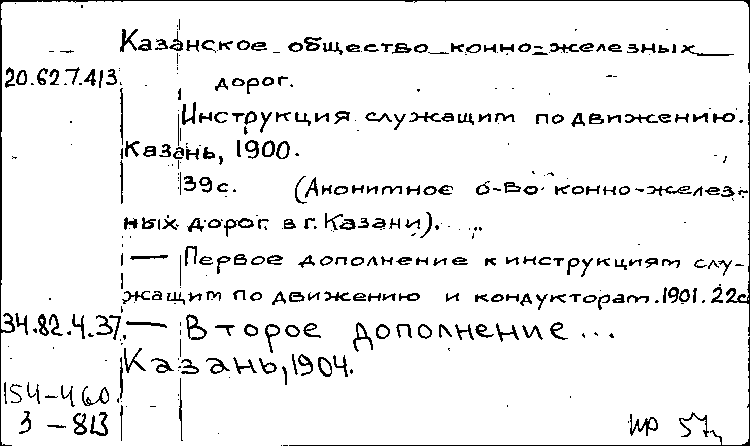 Казанское общество конно-железных
20.62.7.413 дорог.
Инструкция служащим по движению.
Казань, 1900.
39с. (Анонимное о-во конно-желез-
ных дорог в г. Казани).
— Первое дополнение к инструкциям слу-
жащим по движению и кондукторам. 1901. 22с
34.82.4.37. — Второе дополнение...
Казань, 1904.
154-460
3-813